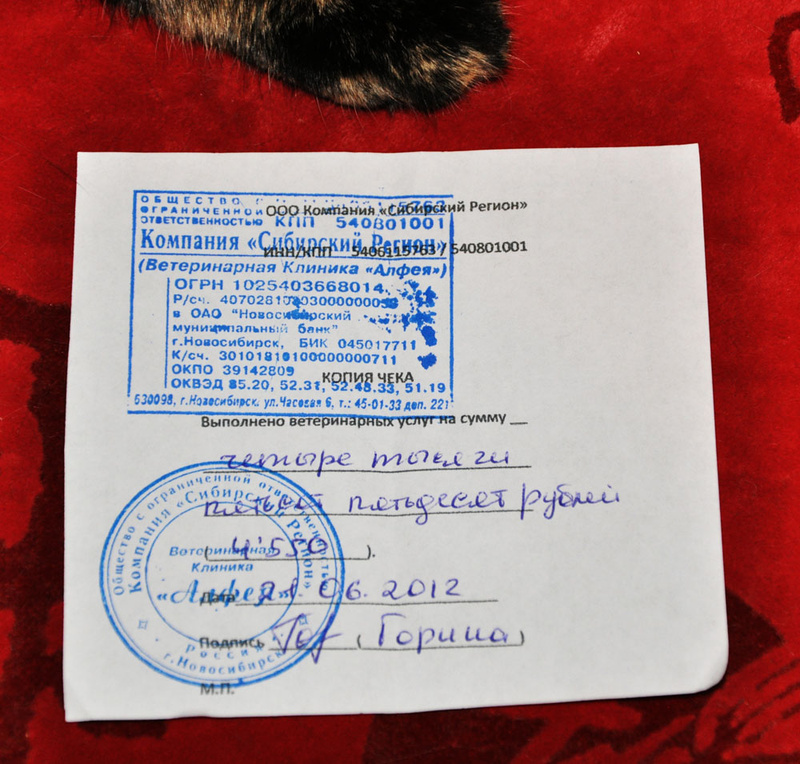 ОБЩЕСТВО 5763
ОГРАНИЧЕННОЙ
ОТВЕТСТВЕННОСТЬЮ КПП 540801001
Компания «Сибирский Регион»
(Ветеринарная Клиника «Алфея»)
ОГРН 1025403668014
Р/сч.
в ОАО "Новосибирский
муниципальный банк"
г.Новосибирск, БИК 045017711
К/сч. 30101810100000000711
ОКПО 39142809
ОКВЭД 85.20, 52.31, 52.48.33, 51.19
630098, г.Новосибирск, ул.Часовая 6, т.: 45-01-33 доп. 221
ООО Компания «Сибирский Регион»
ИНН/КПП 5406115763 / 540801001
КОПИЯ ЧЕКА
Выполнено ветеринарных услуг на сумму __
четыре тысячи
пятьсот пятьдесят рублей
(4'550).
Дата 21.06.2012
Подпись (Горина)
М.П.
Общество с ограниченной ответственностью
Компания «Сибирский Регион»
Ветеринарная
Клиника
«Алфея»
Россия
г.Новосибирск